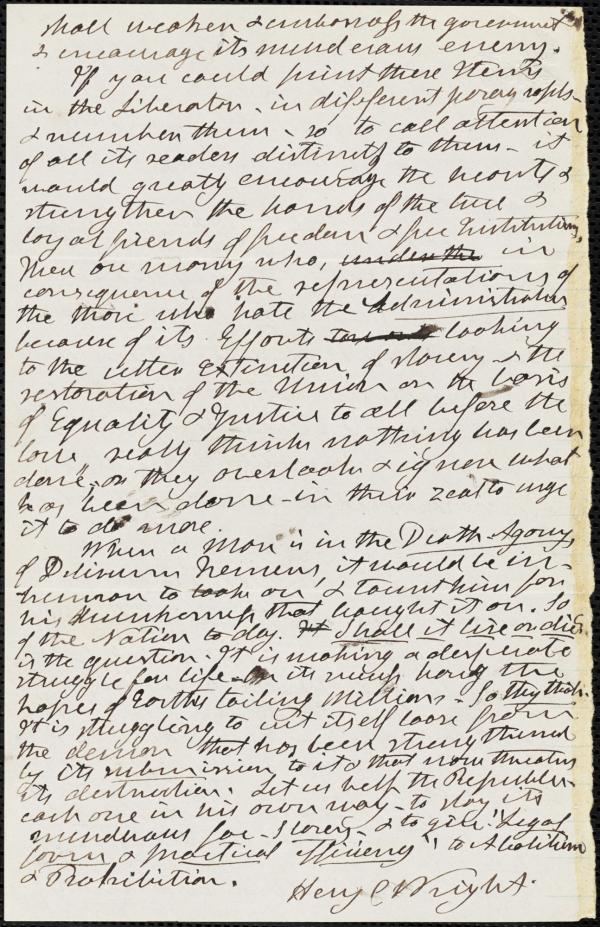 shall weaken & embarrass the government
& encourage its murderous enemy.
If you could print these Items
in the Liberator - in different paragraphs -
& number them - so to call attention
of all its readers distinctly to them - it
would greatly encourage the hearts &
strengthen the hands of the true &
loyal friends of freedom & free Institutions,
There are many who, under the in
consequence of the representations of
the those who hate the Administration
because of its Efforts looking
to the utter Extinction of slavery & the
restoration of the Union on the basis
of Equality & Justice to all before the
law really think nothing has been
done, or they overlook & ignore what
has been done - in their zeal to urge
it to do more.
When a Man is in the Death-Agony
of Delirium Tremens, it would be in-
human to look on, & taunt him for
his drunkenness that brought it on. So
of the Nation to-day. It Shall it live or die?
is the question. It is making a desperate
struggle for life - on its success hang the
hopes of Earth's toiling Millions - So they think.
It is struggling to cut itself loose from
the demon that has been strengthened
by its submission to it & that now threatens
its destruction. Let us help the Republic -
each one in his own way - to slay its
murderous foe - Slavery - & to give "Legal
form & practical efficiency" to Abolition
& Prohibition.
Henry C Wright.